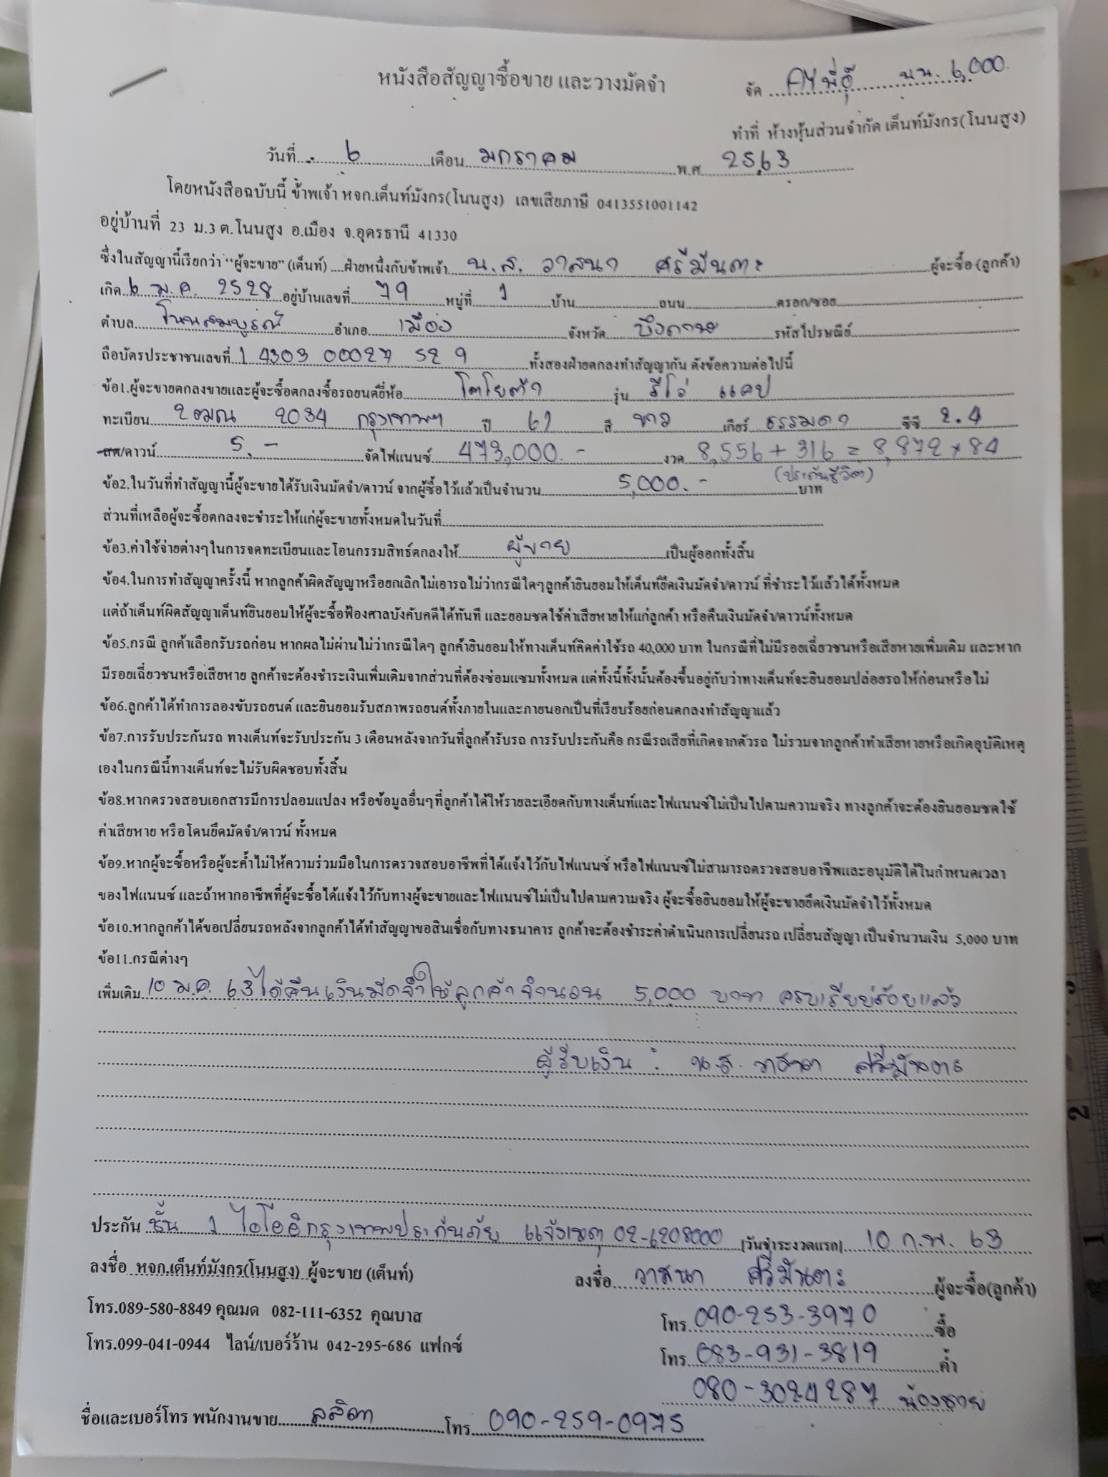 หนังสือสัญญาซื้อขาย และวางมัดจำ
จัด AY นน. 6,000
ทำที่ ห้างหุ้นส่วนจำกัด เต็นท์มังกร(โนนสูง)
วันที่ 6 เดือน มกราคม พ.ศ. 2563
โดยหนังสือฉบับนี้ ข้าพเจ้า หจก.เต็นท์มังกร(โนนสูง) เลขเสียภาษี 0413551001142
อยู่บ้านที่ 23 ม.3 ต.โนนสูง อ.เมือง จ.อุดรธานี 41330
ซึ่งในสัญญานี้เรียกว่า "ผู้จะขาย" (เต็นท์) ....ฝ่ายหนึ่งกับข้าพเจ้า น.ส. วาสนา ศรีมันตะ ผู้จะซื้อ (ลูกค้า)
เกิด 6 ม.ค. 2528 อยู่บ้านเลขที่ 79 หมู่ที่ 1 บ้าน ถนน ตรอก/ซอย
ตำบล โนนสมบูรณ์ อำเภอ เมือง จังหวัด บึงกาฬ รหัสไปรษณีย์
ถือบัตรประชาชนเลขที่ 1 4303 00027 52 9 ทั้งสองฝ่ายตกลงทำสัญญากัน ดังข้อความต่อไปนี้
ข้อ1.ผู้จะขายตกลงขายและผู้จะซื้อตกลงซื้อรถยนต์ยี่ห้อ โตโยต้า รุ่น รีโว่ แคป
ทะเบียน 2ฒณ 2034 กรุงเทพฯ ปี 61 สี ขาว เกียร์ ธรรมดา ซีซี 2.4
สด/ดาวน์ 5.- จัดไฟแนนซ์ 473,000.- งวด 8,556 + 316 = 8,872 x 84
(ประกันชีวิต)
ข้อ2.ในวันที่ทำสัญญานี้ผู้จะขายได้รับเงินมัดจำ/ดาวน์ จากผู้ซื้อไว้แล้วเป็นจำนวน 5,000.- บาท
ส่วนที่เหลือผู้จะซื้อตกลงจะชำระให้แก่ผู้จะขายทั้งหมดในวันที่
ข้อ3.ค่าใช้จ่ายต่างๆในการจดทะเบียนและโอนกรรมสิทธิ์ตกลงให้ ผู้ขาย เป็นผู้ออกทั้งสิ้น
ข้อ4.ในการทำสัญญาครั้งนี้ หากลูกค้าผิดสัญญาหรือยกเลิกไม่เอารถ ไม่ว่ากรณีใดๆลูกค้ายินยอมให้เต็นท์ยึดเงินมัดจำ/ดาวน์ ที่ชำระไว้แล้วได้ทั้งหมด
แต่ถ้าเต็นท์ผิดสัญญาเต็นท์ยินยอมให้ผู้จะซื้อฟ้องศาลบังคับคดีได้ทันที และยอมชดใช้ค่าเสียหายให้แก่ลูกค้า หรือคืนเงินมัดจำ/ดาวน์ทั้งหมด
ข้อ5.กรณี ลูกค้าเลือกรับรถก่อน หากผลไม่ผ่านไม่ว่ากรณีใดๆ ลูกค้ายินยอมให้ทางเต็นท์คิดค่าใช้รถ 40,000 บาท ในกรณีที่ไม่มีรอยเฉี่ยวชนหรือเสียหายเพิ่มเติม และหาก
มีรอยเฉี่ยวชนหรือเสียหาย ลูกค้าจะต้องชำระเงินเพิ่มเติมจากส่วนที่ต้องซ่อมแซมทั้งหมด แต่ทั้งนี้ทั้งนั้นต้องขึ้นอยู่กับว่าทางเต็นท์จะยินยอมปล่อยรถให้ก่อนหรือไม่
ข้อ6.ลูกค้าได้ทำการลองขับรถยนต์ และยินยอมรับสภาพรถยนต์ทั้งภายในและภายนอกเป็นที่เรียบร้อยก่อนตกลงทำสัญญาแล้ว
ข้อ7.การรับประกันรถ ทางเต็นท์จะรับประกัน 3 เดือนหลังจากวันที่ลูกค้ารับรถ การรับประกันคือ กรณีรถเสียที่เกิดจากตัวรถ ไม่รวมจากลูกค้าทำเสียหายหรือเกิดอุบัติเหตุ
เองในกรณีนี้ทางเต็นท์จะไม่รับผิดชอบทั้งสิ้น
ข้อ8.หากตรวจสอบเอกสารมีการปลอมแปลง หรือข้อมูลอื่นๆที่ลูกค้าได้ให้รายละเอียดกับทางเต็นท์และไฟแนนซ์ไม่เป็นไปตามความจริง ทางลูกค้าจะต้องยินยอมชดใช้
ค่าเสียหาย หรือโดนยึดมัดจำ/ดาวน์ ทั้งหมด
ข้อ9.หากผู้จะซื้อหรือผู้จะค้ำไม่ให้ความร่วมมือในการตรวจสอบอาชีพที่ได้แจ้งไว้กับไฟแนนซ์ หรือไฟแนนซ์ไม่สามารถตรวจสอบอาชีพและอนุมัติได้ในกำหนดเวลา
ของไฟแนนซ์ และถ้าหากอาชีพที่ผู้จะซื้อได้แจ้งไว้กับทางผู้จะขายและไฟแนนซ์ไม่เป็นไปตามความจริง ผู้จะซื้อยินยอมให้ผู้จะขายยึดเงินมัดจำไว้ทั้งหมด
ข้อ10.หากลูกค้าได้ขอเปลี่ยนรถหลังจากลูกค้าได้ทำสัญญาขอสินเชื่อกับทางธนาคาร ลูกค้าจะต้องชำระค่าดำเนินการเปลี่ยนรถ เปลี่ยนสัญญา เป็นจำนวนเงิน 5,000 บาท
ข้อ11.กรณีต่างๆ
เพิ่มเติม 10 ม.ค. 63 ได้คืนเงินมัดจำให้ลูกค้าจำนวน 5,000 บาท ครบเรียบร้อยแล้ว
ผู้รับเงิน : น.ส. วาสนา ศรีมันตะ
ประกัน ชั้น 1 ไอโออิกรุงเทพประกันภัย แจ้งเหตุ 02-6208000 [วันชำระงวดแรก] 10 ก.พ. 63
ลงชื่อ หจก.เต็นท์มังกร(โนนสูง) ผู้จะขาย (เต็นท์)
ลงชื่อ วาสนา ศรีมันตะ ผู้จะซื้อ(ลูกค้า)
โทร.089-580-8849 คุณมด 082-111-6352 คุณบาส
โทร 090-253-3970 ซื้อ
โทร.099-041-0944 ไลน์/เบอร์ร้าน 042-295-686 แฟกซ์
โทร 083-931-3819 ค้ำ
080-3024287 น้องชาย
ชื่อและเบอร์โทร พนักงานขาย ลลิตา โทร 090-259-0975